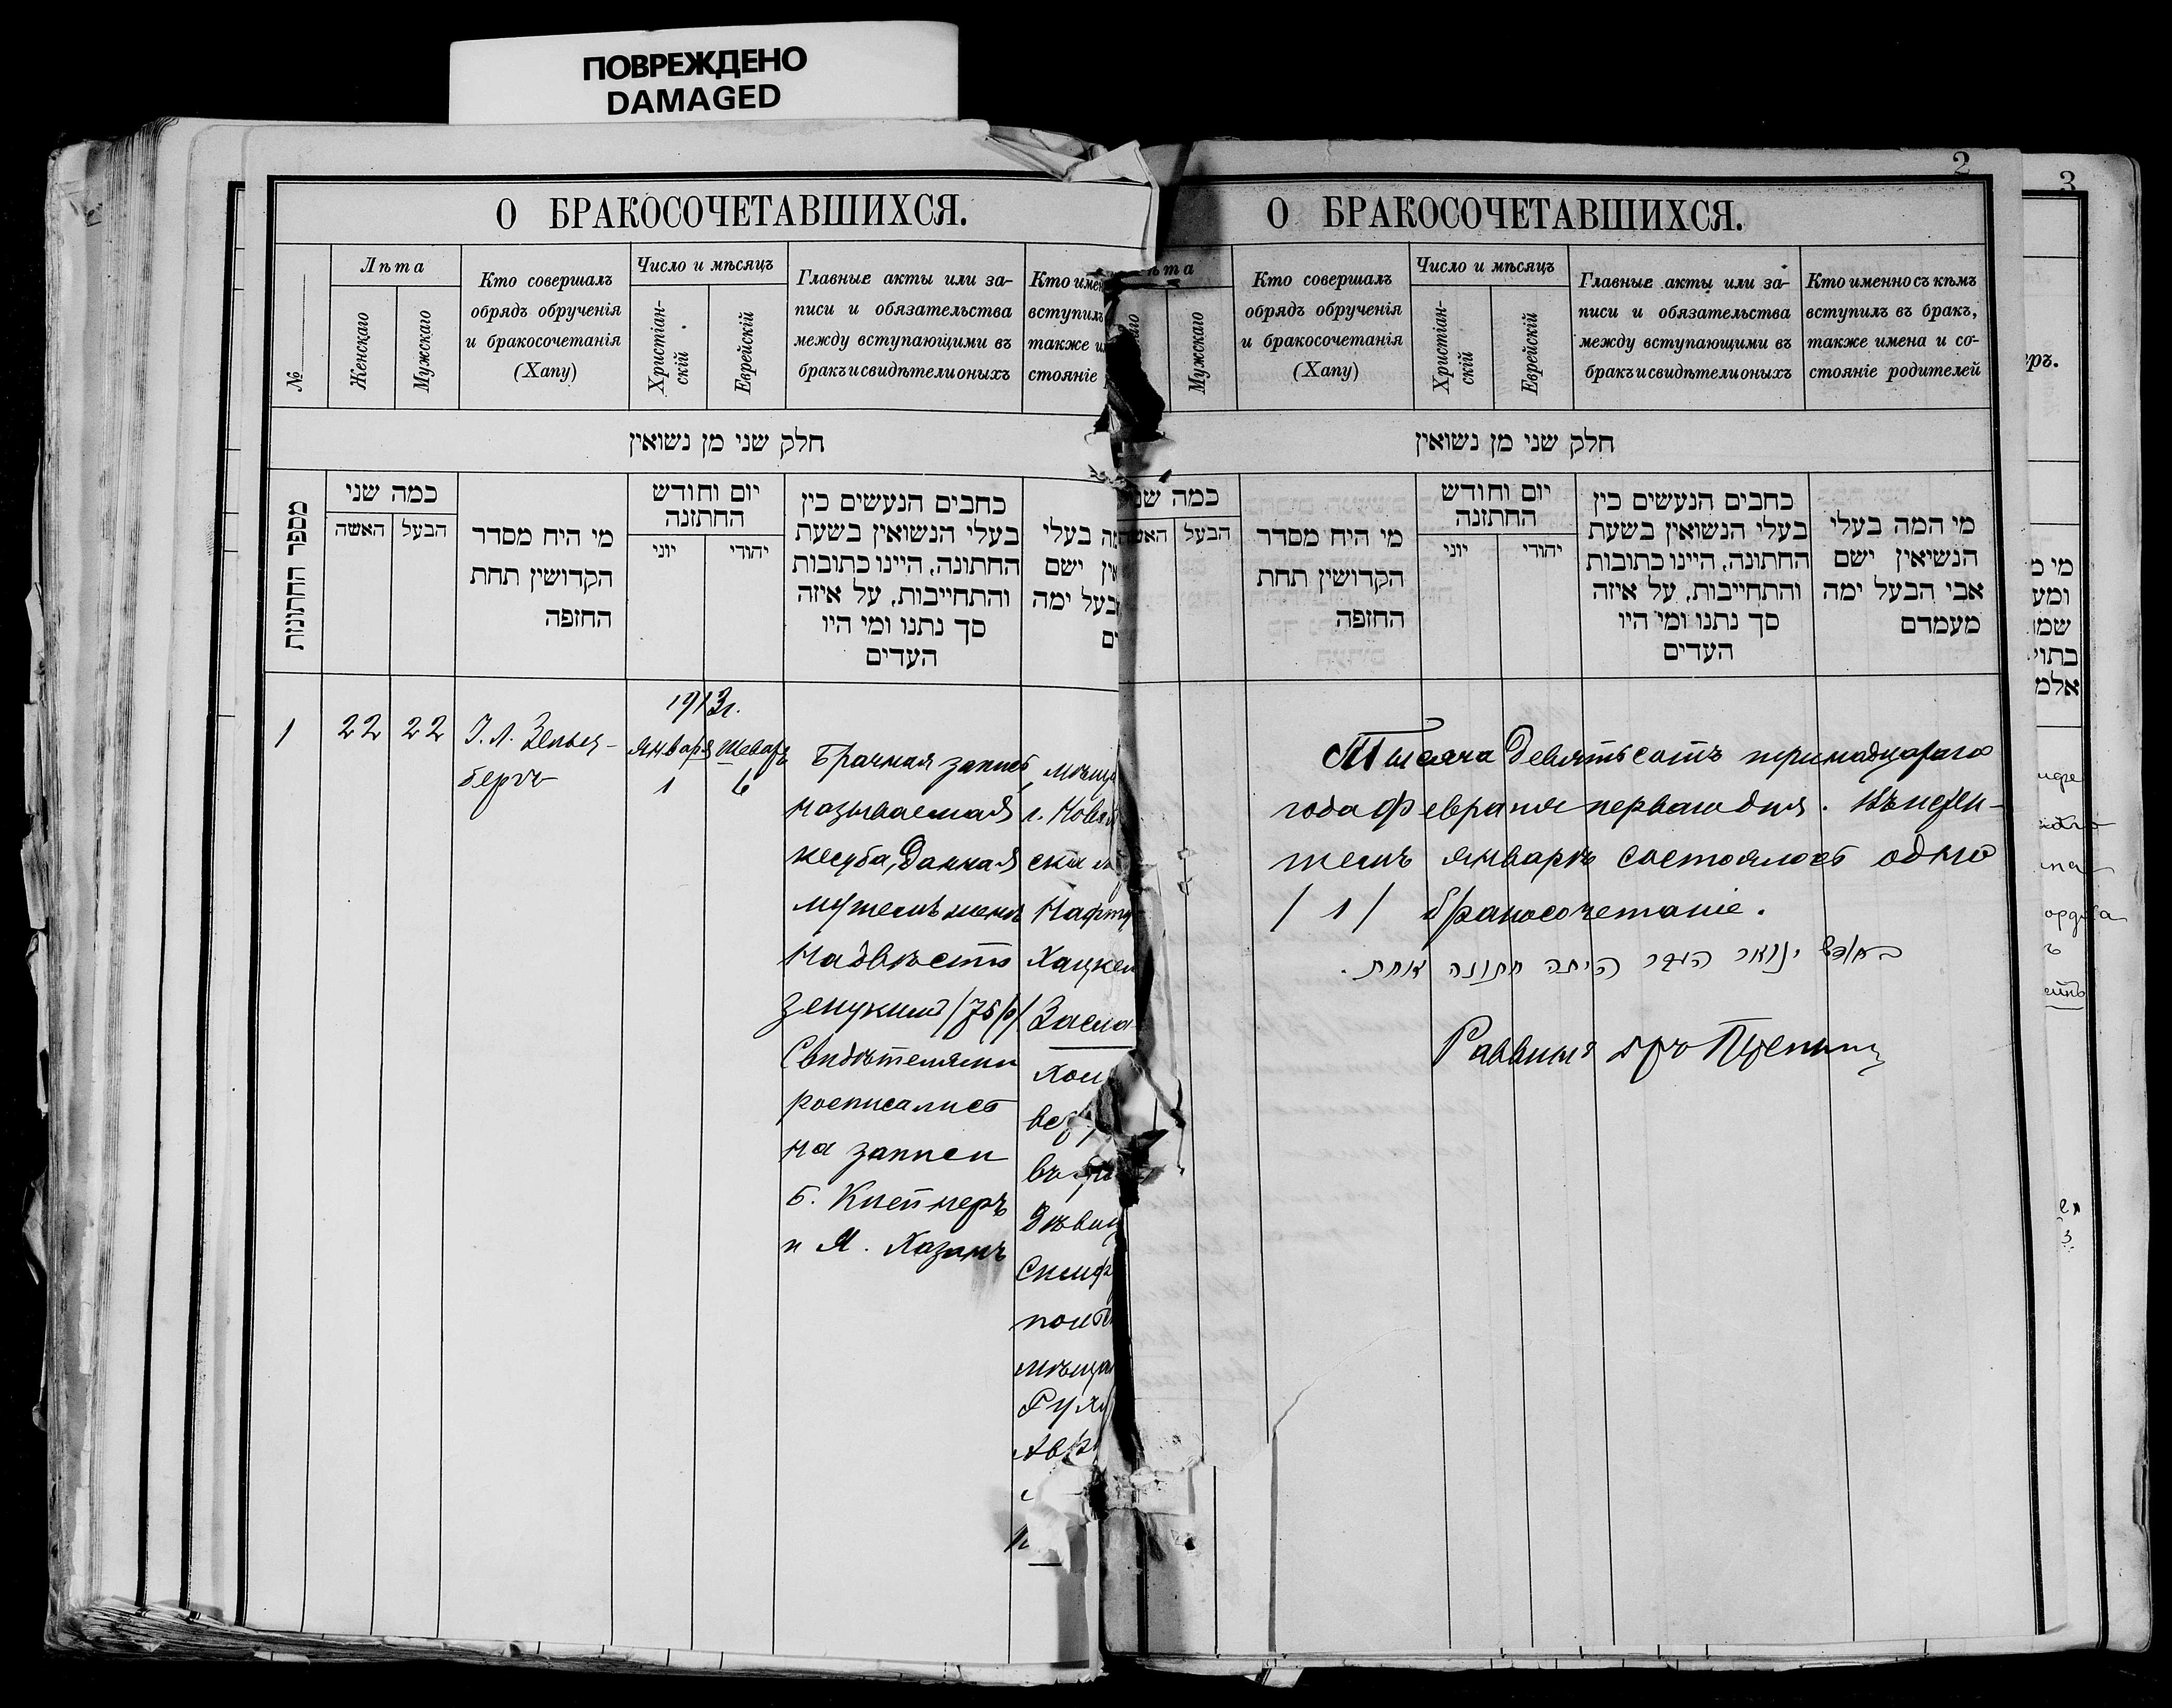 ПОВРЕЖДЕНО
DAMAGED
О БРАКОСОЧЕТАВШИХСЯ.
№
Лѣта
Женскаго
Мужскаго
Кто совершалъ
обрядъ обрученія
и бракосочетанія
(Хапу)
Число и мѣсяцъ
Христіан-
скій
Еврейскій
Главные акты или за-
писи и обязательства
между вступающими въ
бракъ и свидѣтели оныхъ
Кто имен
вступилъ
также и
стояніе
חלק שני מן נשואין
מספר החתונות
כמה שני
האשה
הבעל
מי היח מסדר
הקדושין תחת
החזפה
יום וחודש
החתזנה
יוני
יהודי
כחבים הנעשים כין
בעלי הנשואין בשעת
החתונה, היינו כתובות
והתחייבות, על איזה
סך נתנו ומי היו
העדים
מה בעלי
אין ישם
בעל ימה
ים
1
22
22
І. Л. Зельц-
бергъ
1913г.
Января
1
Шеватъ
6
Брачная запись
называемая
кесуба, данная
мужемъ женѣ
на двѣсти
зенукимъ /75 р/
Свидѣтелями
росписались
на записи
Б. Клейнеръ
и М. Хазанъ
мѣща
г. Новъ
ска
Нафту
Хацкел
Засла
въ
Дѣвиц
Симф
мѣща
2
О БРАКОСОЧЕТАВШИХСЯ.
ѣта
Мужскаго
Кто совершалъ
обрядъ обрученія
и бракосочетанія
(Хапу)
Число и мѣсяцъ
Христіан-
скій
Еврейскій
Главные акты или за-
писи и обязательства
между вступающими въ
бракъ и свидѣтели оныхъ
Кто именно съ кѣмъ
вступилъ въ бракъ,
также имена и со-
стояніе родителей
חלק שני מן נשואין
כמה שני
האשה
הבעל
מי היח מסדר
הקדושין תחת
החזפה
יום וחודש
החתזנה
יוני
יהודי
כחבים הנעשים כין
בעלי הנשואין בשעת
החתונה, היינו כתובות
והתחייבות, על איזה
סך נתנו ומי היו
העדים
מי המה בעלי
הנשיאין ישם
אבי הבעל ימה
מעמדם
Тысяча девятьсотъ тринадцатаго
года февраля перваго дня. Въ истек-
шемъ январѣ состоялось одно
/ 1 / бракосочетаніе.
בחודש ינואר העבר היתה חתונה אחת.
Раввинъ
3
еръ.
מי מ
ומע
שמו
בתו
אלמ